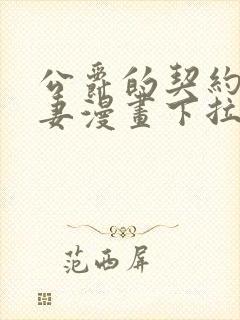 公爵的契約
妻漫畫下拉
范西屏